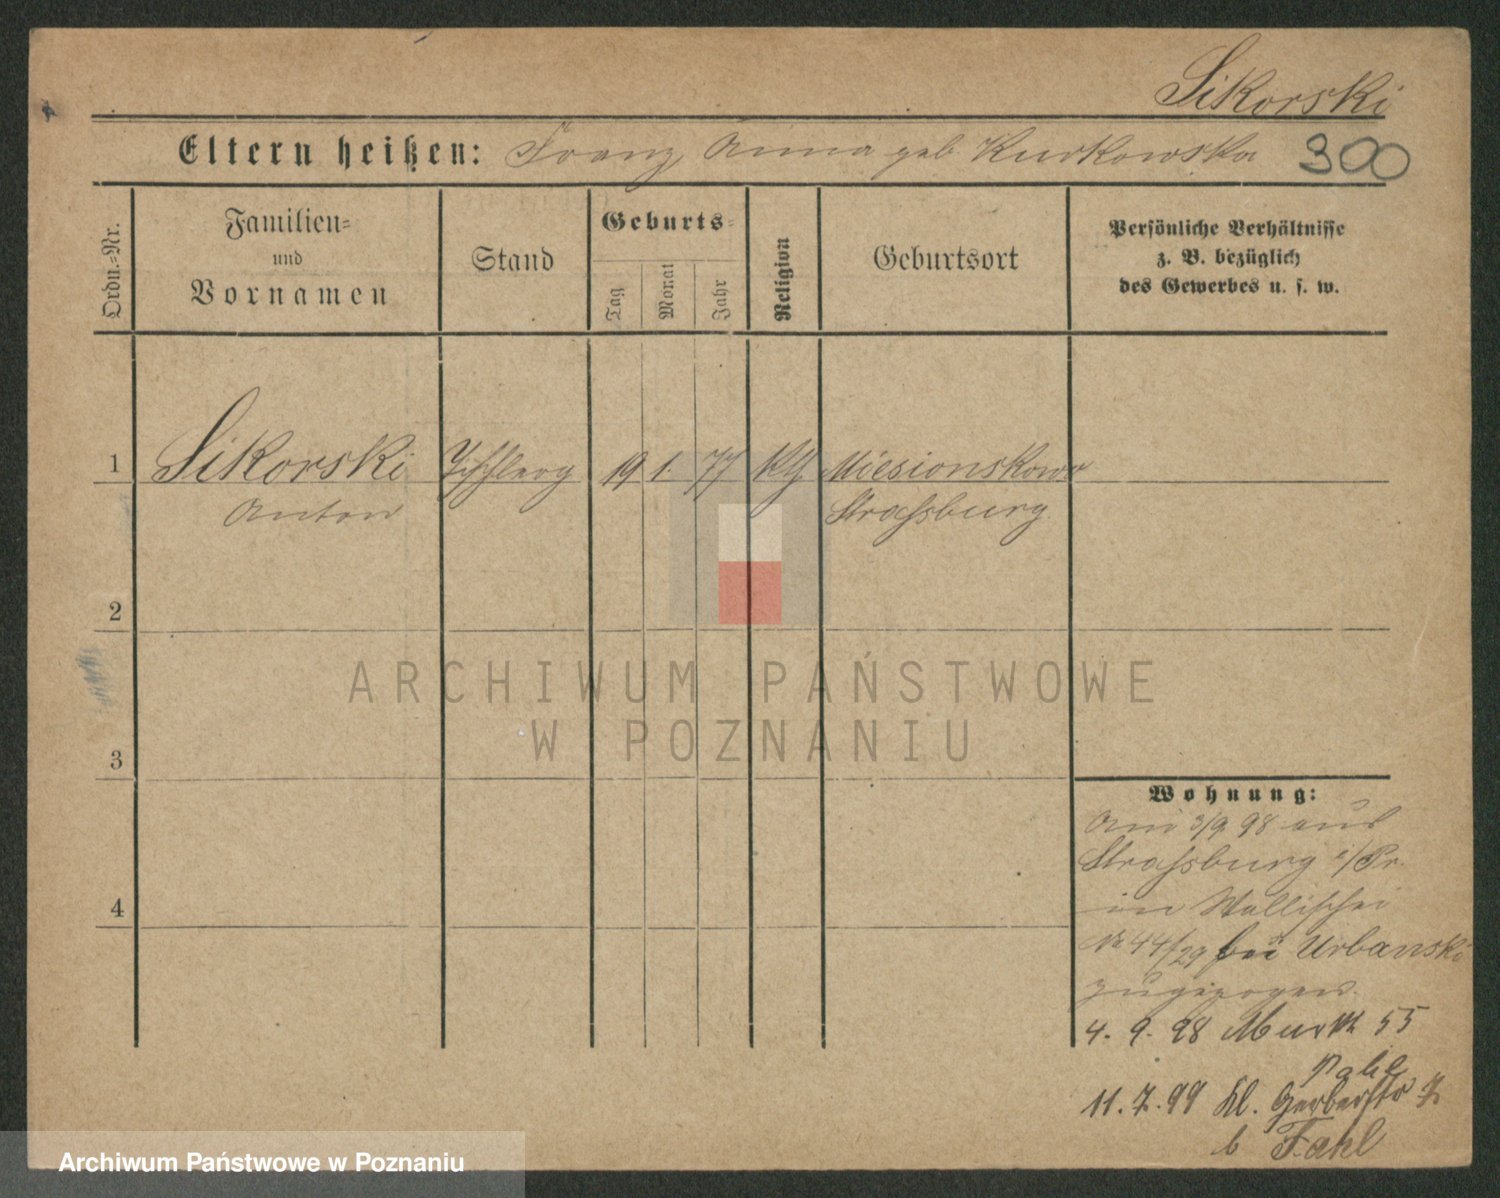 Sikorski
Eltern heißen: Franz Anna geb. Kurkowska 300
Ordn.=Nr.
Familien=
und
Vornamen
Stand
Geburts=
Tag
Monat
Jahr
Religion
Geburtsort
Persönliche Verhältnisse
z. B. bezüglich
des Gewerbes u. s. w.
1 Sikorski Tischlerg 19 1. 77 Miesionskowo
Anton Straßburg
2
3
4
Wohnung:
Am 3/9 98 aus
Strassburg /Pr.
in Wallischei
No 44/29 bei Urbanski
zugezogen.
4. 9. 98 Markt 55
11. 7. 99 Kl. Gerberstr 7
b Fahl
ARCHIWUM PAŃSTWOWE
W POZNANIU
Archiwum Państwowe w Poznaniu